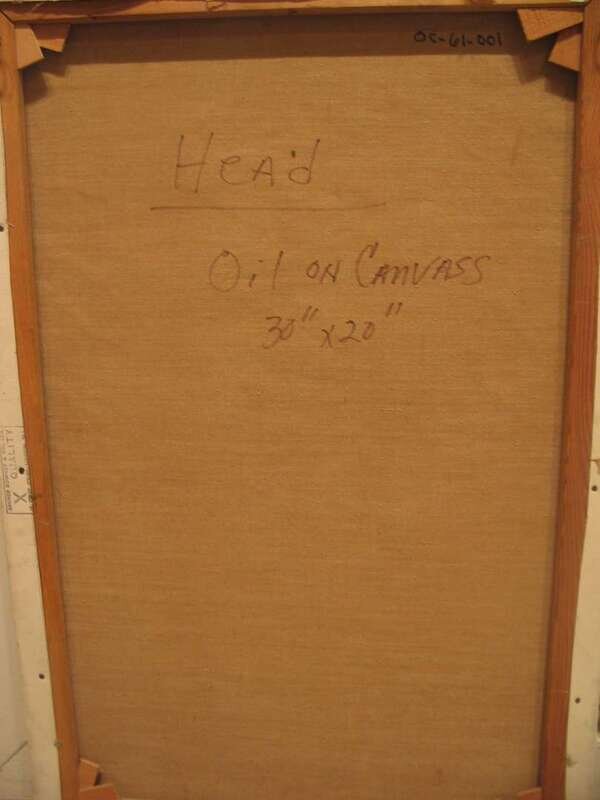 OC-61-001
Head
Oil on Canvass
30" x 20"
QUALITY
X